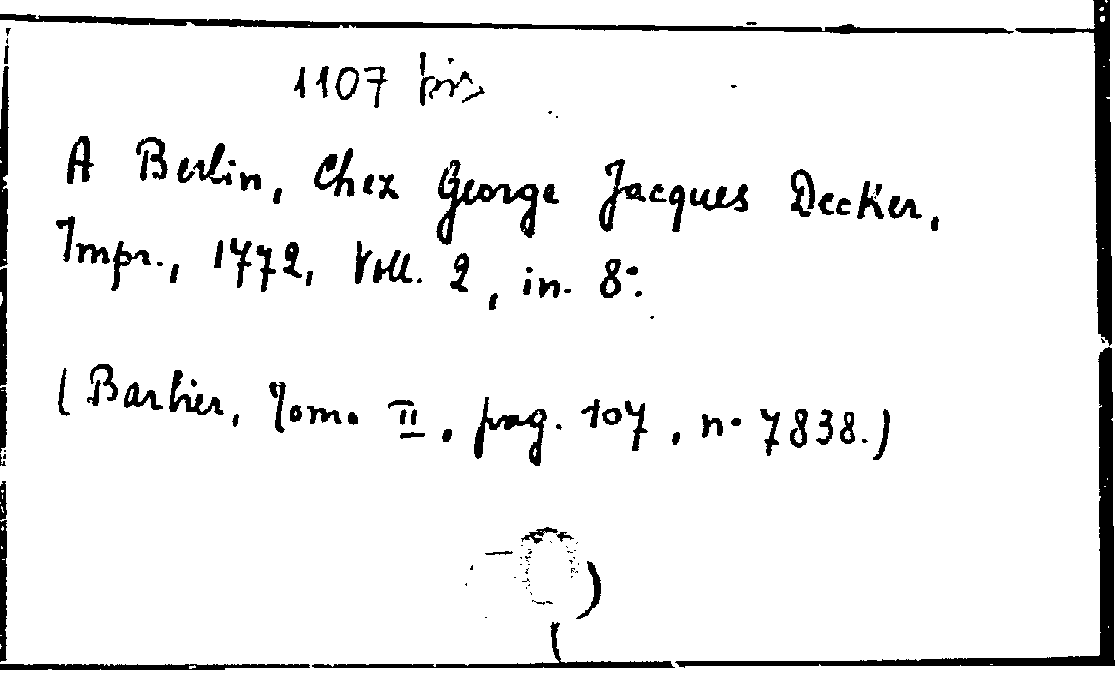 1107 bis
A Berlin, Chez George Jacques Decker,
Impr., 1772, Voll. 2, in 8º.
(Barbier, Tom. II, pag. 107, nº 7838.)